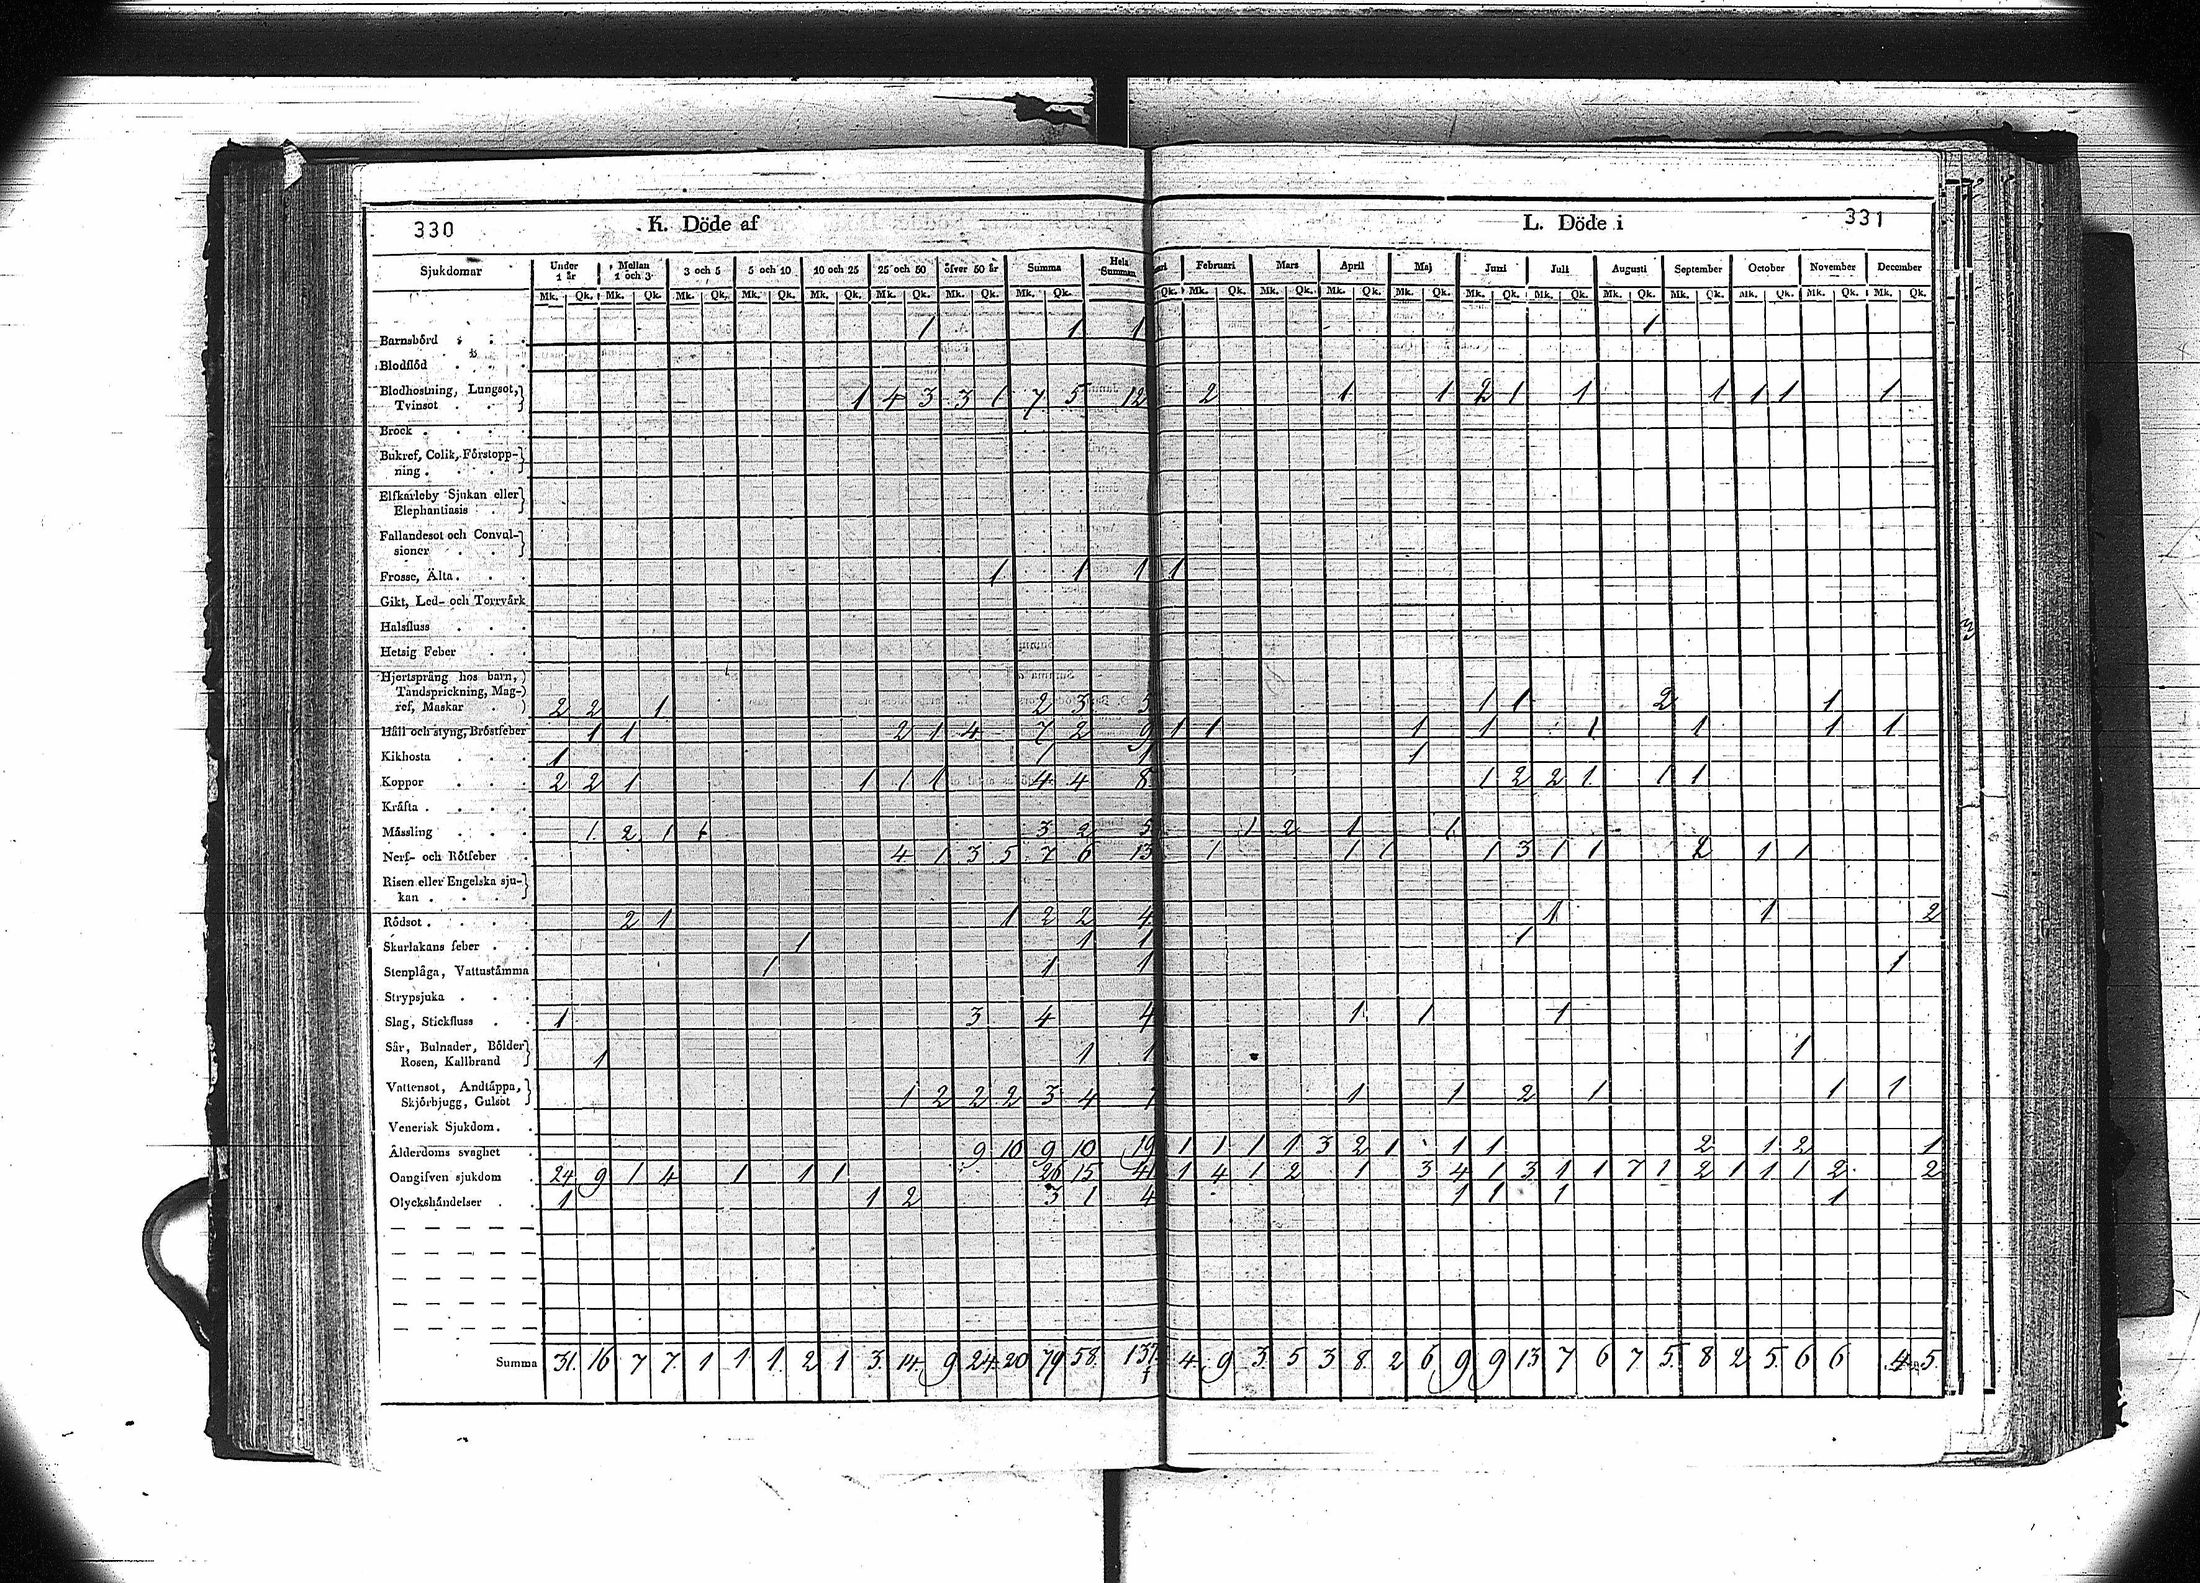 330 K. Döde af
Sjukdomar Under 1 år Mellan 1 och 3 3 och 5 5 och 10 10 och 25 25 och 50 öfver 50 år Summa Hela Summan
Mk. Qk. Mk. Qk. Mk. Qk. Mk. Qk. Mk. Qk. Mk. Qk. Mk. Qk. Mk. Qk.
Barnsbörd . . . 1 1 1
Blodflöd . . .
Blodhostning, Lungsot,
Tvinsot . . . 1 4 3 3 1 7 5 12
Bröck . . . .
Bukref, Colik, Förstopp-
ning . . .
Elfkarleby Sjukan eller
Elephantiasis .
Fallandesot och Convul-
sioner . . .
Frosse, Älta . . . 1 1 1
Gikt, Led- och Torrvärk
Halsfluss . . .
Hetsig Feber . .
Hjertsprång hos barn,
Tandsprickning, Mag-
ref, Maskar . 2 2 1 2 3 5
Håll och styng, Bröstfeber 1 1 2 1 4 7 2 9
Kikhosta . . . 1 1 1
Koppor . . . 2 2 1 1 1 1 4 4 8
Kräfta . . . .
Mässling . . . 1 2 1 1 3 2 5
Nerf- och Rötfeber . 4 1 3 5 7 6 13
Risen eller Engelska sju-
kan . . .
Rödsot . . . . 2 1 1 2 2 4
Skurlakans feber . . 1 1 1
Stenplåga, Vattustämma 1 1 1
Strypsjuka . . .
Slag, Stickfluss . . 1 3 4 4
Sår, Bulnader, Bölder
Rosen, Kallbrand 1 1 1
Vattensot, Andtäppa,
Skjörbjugg, Gulsot 1 2 2 2 3 4 7
Venerisk Sjukdom. .
Ålderdoms svaghet . 9 10 9 10 19
Oangifven sjukdom . 24 9 1 4 1 1 1 26 15 41
Olyckshändelser . . 1 1 2 3 1 4
Summa 31. 16 7 7. 1 1 1. 2 1 3. 14. 9 24. 20 79 58. 137
L. Döde i 331
Februari Mars April Maj Juni Juli Augusti September October November December
Qk. Mk. Qk. Mk. Qk. Mk. Qk. Mk. Qk. Mk. Qk. Mk. Qk. Mk. Qk. Mk. Qk. Mk. Qk. Mk. Qk. Mk. Qk.
1
2 1 1 2 1 1 1 1 1 1
1
1 1 2 1
1 1 1 1 1 1 1 1
1
1 2 2 1 1 1
1 2 1 1
1 1 1 1 3 1 1 2 1 1
1 1 2
1
1
1 1 1
1
1 1 2 1 1 1
1 1 1 1 3 2 1 1 1 2 1 2 1
1 4 1 2 1 3 4 1 3 1 1 7 1 2 1 1 1 2 2
1 1 1 1
4. 9 3 5 3 8. 2 6 9 9 13 7 6 7 5. 8 2 5. 6 6 4 5.